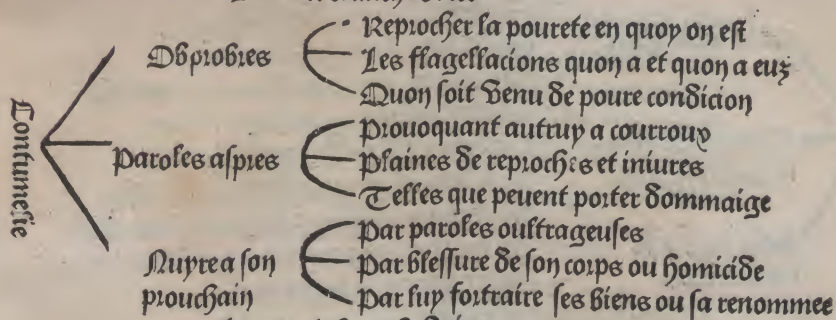 Contumelie
Obprobres
Reprocher la pourete en quoy on est
Les flagellacions quon a et quon a euz
Quon soit venu de poure condicion
Paroles aspres
Prouoquant autruy a courroux
Plaines de reproches et iniures
Telles que peuent porter dommaige
Nuyre a son
prouchain
Par paroles oultrageuses
Par blessure de son corps ou homicide
Par luy fortraire ses biens ou sa renommee